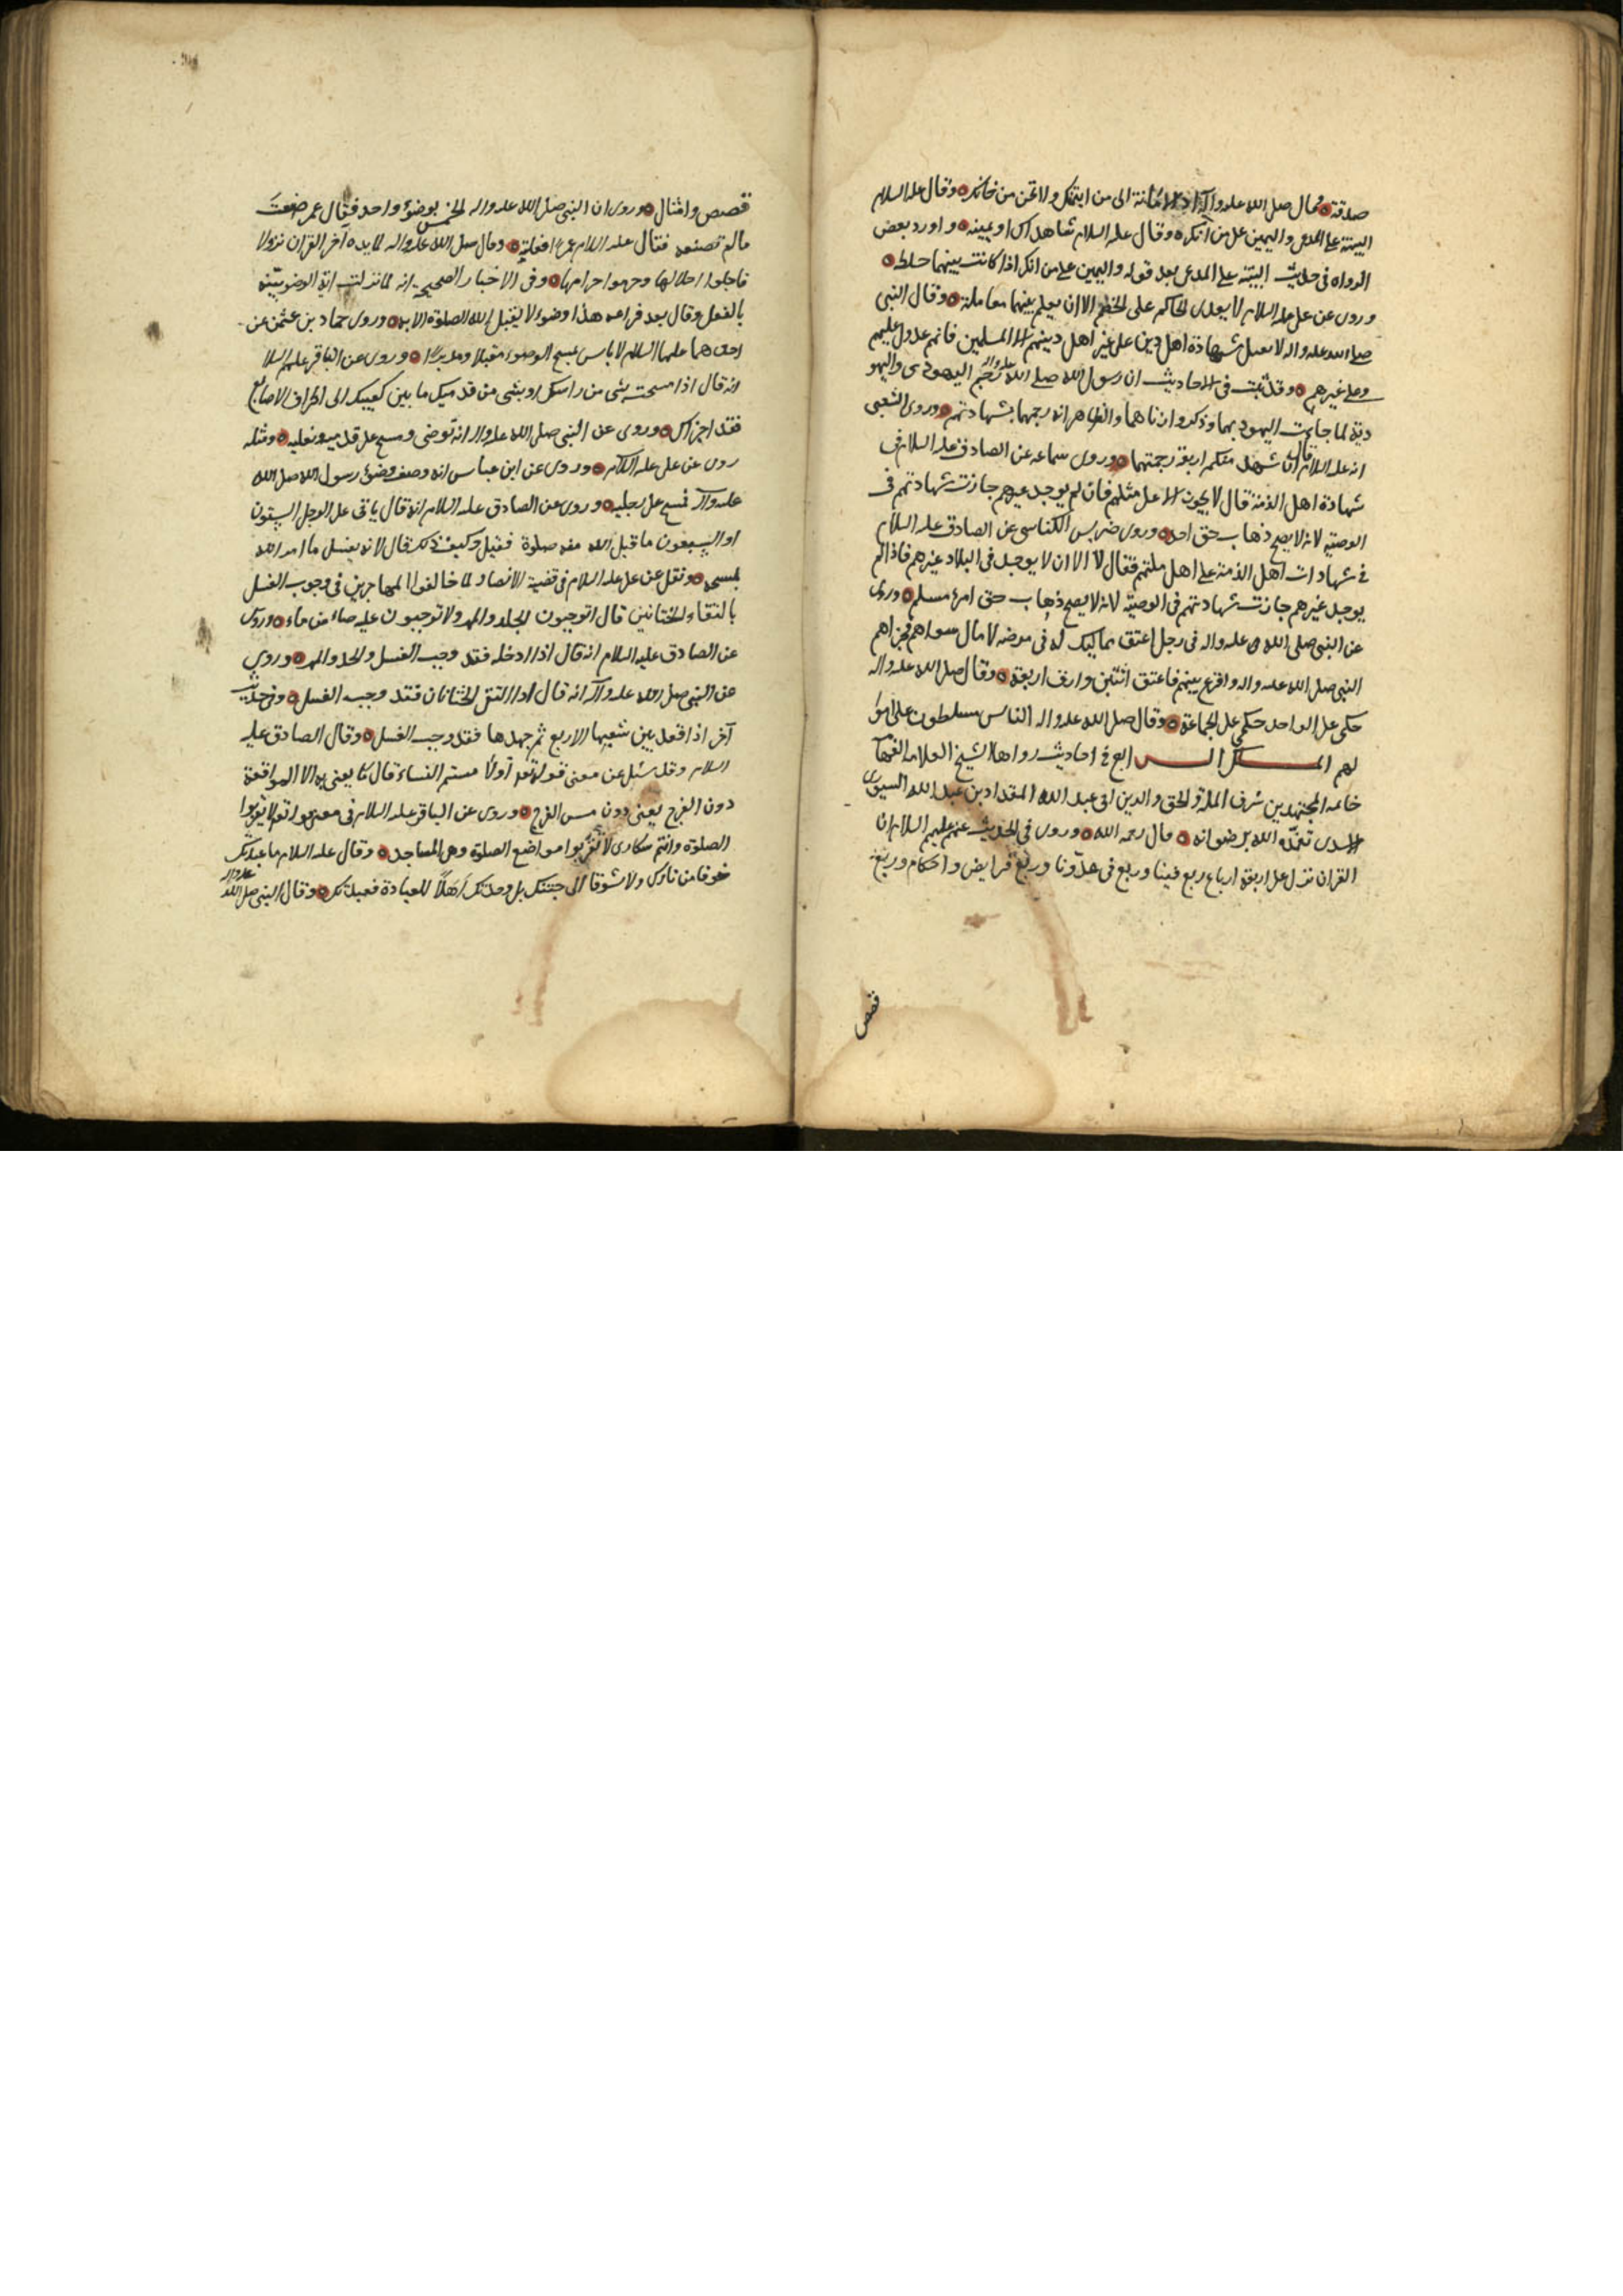 صدقة وقال صلى الله عليه وآله أد الامانة الى من ائتمنك ولا تخن من خانك وقال عليه السلام
البينة على المدعى واليمين على من انكره وقال عليه السلام شاهداك او يمينه واورد بعض
الرواه فى حديث البينة على المدعى بعد قوله واليمين على من انكر اذا كانت بينهما خلطه
وروى عن على عليه السلام لا يعدى الحاكم على الخصم الا ان يعلم بينهما معاملة وقال النبى
صلى الله عليه واله لا تقبل شهادة اهل دين على غير اهل دينهم الا المسلمين فانهم عدول عليهم
وعلى غيرهم وقد ثبت فى الاحاديث ان رسول الله صلى الله عليه واله رجم اليهودى واليهو
دية لما جاءت اليهود بهما وذكروا زناهما والظاهر انه رجمهما بشهادتهم وروى الشعبى
انه عليه السلام قال ان شهد منكم اربعة رجمتهما وروى سماعه عن الصادق عليه السلام فى
شهادة اهل الذمة قال لا يجوز الا على مثلهم فان لم يوجد غيرهم جازت شهادتهم فى
الوصية لانه لا يصح ذهاب حق احد وروى ضريس الكناسى عن الصادق عليه السلام
فى شهادات اهل الذمة على اهل ملتهم فقال لا الا ان لا يوجد فى البلاد غيرهم فاذا لم
يوجد غيرهم جازت شهادتهم فى الوصية لانه لا يصح ذهاب حق امرء مسلم وروى
عن النبى صلى الله عليه واله فى رجل اعتق مماليك له فى مرضه لا مال سواهم فجزاهم
النبى صلى الله عليه واله واقرع بينهم فاعتق اثنين وارق اربعة وقال صلى الله عليه واله
حكمى على الواحد حكمى على الجماعة وقال صلى الله عليه واله الناس مسلطون على اموا
لهم المسلك الرابع فى احاديث رواها الشيخ العلامه الفهامه
خاتمه المجتهدين شرف الملة والحق والدين ابى عبد الله المقداد بن عبد الله السيورى
الاسدى تغمده الله برضوانه قال رحمه الله وروى فى الحديث عنهم عليهم السلام ان
القران نزل على اربعة ارباع ربع فينا وربع فى عدونا وربع فرايض واحكام وربع
قصص
قصص وامثال وروى ان النبى صلى الله عليه واله صلى الخمس بوضوء واحد فقال عمر صنعت
مالم تصنعه فقال عليه السلام عمدا فعلته وقال صلى الله عليه واله المايده آخر القران نزولا
فاحلوا حلالها وحرموا حرامها وفى الاخبار الصحيحة انه لما نزلت اية الوضوء بينه
بالفعل وقال بعد فراغه هذا وضوء لا يقبل الله الصلوة الا به وروى حماد بن عثمن عن
احدهما عليهما السلام لا باس بمسح الوضوء مقبلا ومدبرا وروى عن الباقر عليه السلا
انه قال اذا مسحت بشى من راسك او بشى من قدميك ما بين كعبيك الى اطراف الاصابع
فقد اجزاك وروى عن النبى صلى الله عليه واله انه توضى ومسح على قدميه ونعليه ومثله
روى عن على عليه السلام وروى عن ابن عباس انه وصف وضوء رسول الله صلى الله
عليه وآله فمسح على رجليه وروى عن الصادق عليه السلام انه قال ياتى على الرجل الستون
او السبعون ما قبل الله منه صلوة فقيل وكيف ذلك قال لانه يغسل ما امر الله
بمسحه ونقل عن على عليه السلام فى قضية الانصار لما خالفوا المهاجرين فى وجوب الغسل
بالتقاء الختانين قال اتوجبون الجلد والمهر ولا توجبون عليه صاع من ماء وروى
عن الصادق عليه السلام انه قال اذا ادخله فقد وجب الغسل والحد والمهر وروى
عن النبى صلى الله عليه وآله انه قال اذا التقى الختانان فقد وجب الغسل وفى حديث
آخر اذا قعد بين شعبها الاربع ثم جهدها فقد وجب الغسل وقال الصادق عليه
السلام وقد سئل عن معنى قوله تعالى او لا مستم النساء قال ما يعنى به الا المواقعة
دون الفرج يعنى دون مس الفرج وروى عن الباقر عليه السلام فى معنى قوله تعالى لا تقربوا
الصلوة وانتم سكارى لا تقربوا مواضع الصلوة وهى المساجد وقال عليه السلام ما عبدتك
خوفا من نارك ولا شوقا الى جنتك بل وجدتك اهلا للعبادة فعبدتك وقال النبى صلى الله عليه واله